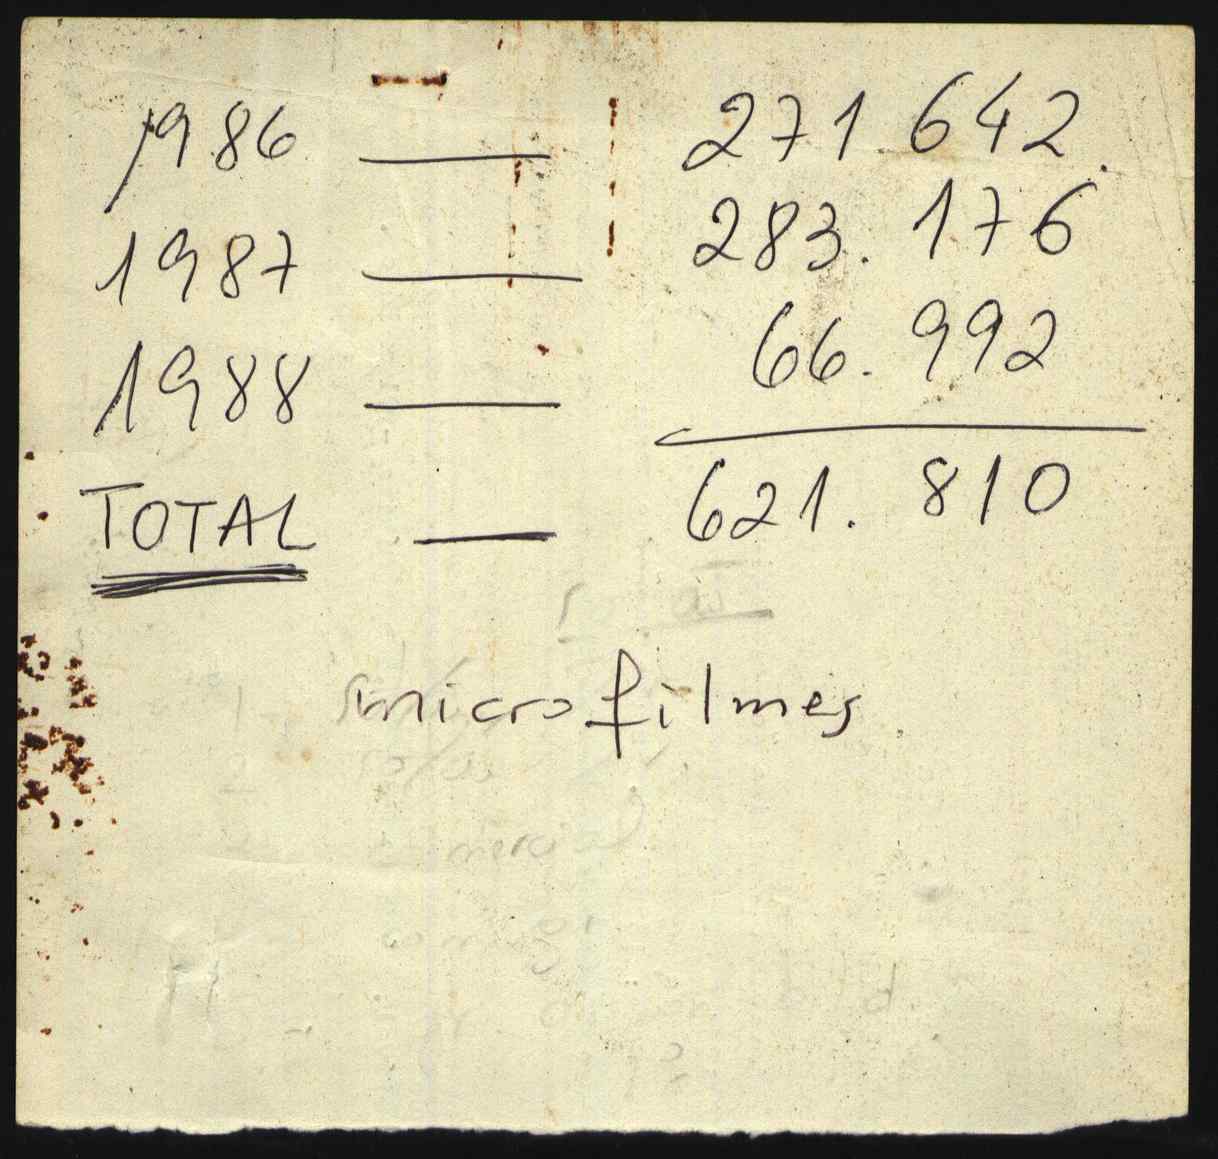 1986 — 271 642.
1987 — 283. 176
1988 — 66. 992
TOTAL — 621. 810
microfilmes